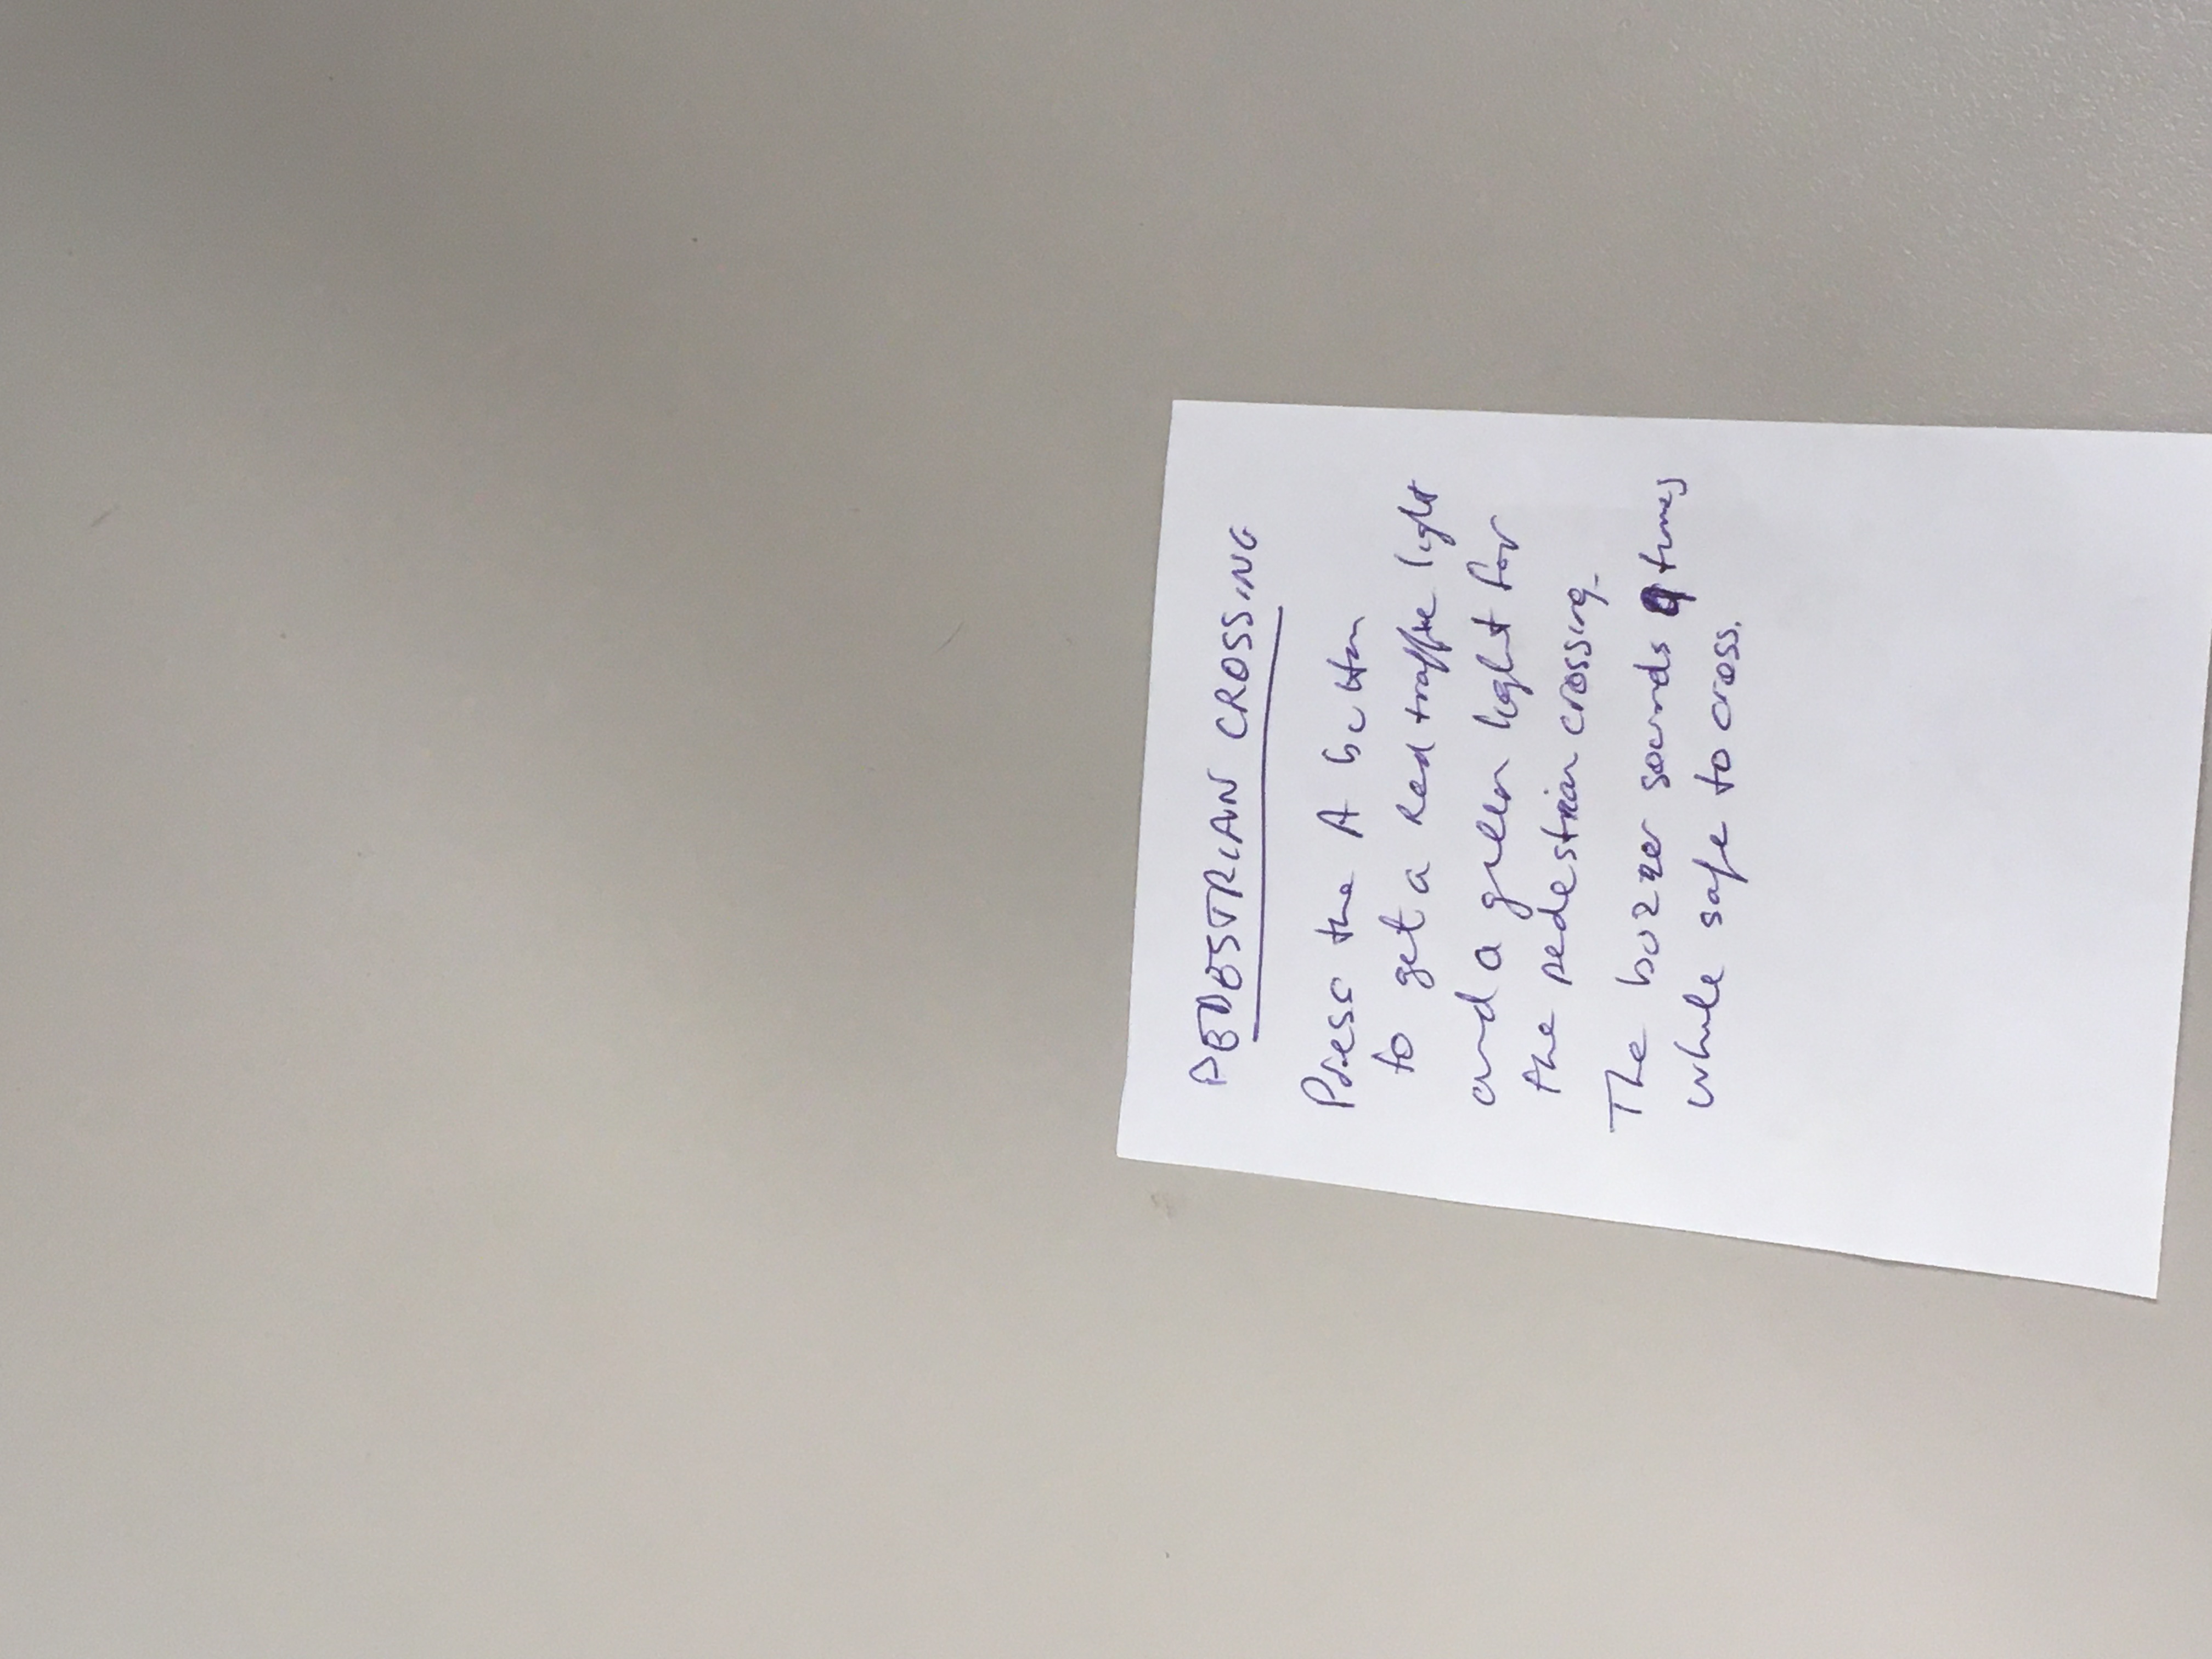 PEDESTRIAN CROSSING
Press the A button
to get a Red traffic light
and a green light for
the pedestrian crossing.
The buzzer sounds 9 times
while safe to cross.